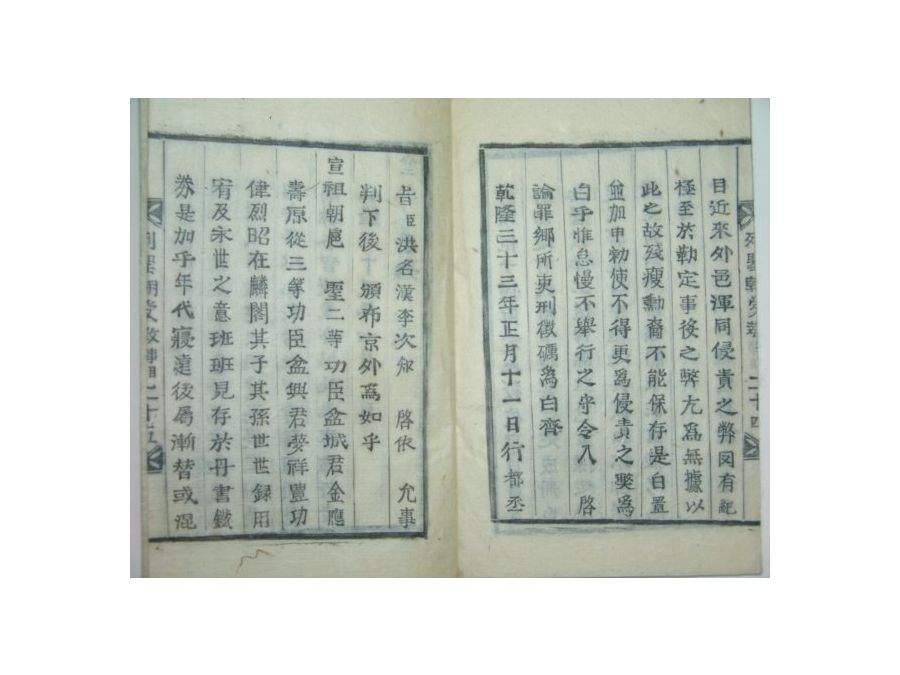 目近來外邑渾同侵責之弊罔有紀
極至於勒定事後之弊尤爲無據以
此之故殘瘦勳裔不能保存是白置
並加申勅使不得更爲侵責之獘爲
白乎惟怠慢不舉行之守令入 啓
論罪鄕所吏刑徵礪爲白齊
乾隆三十三年正月十一日行都丞
旨臣洪名漢李次知 啓依 允事
判下後 頒布京外爲如乎
宣祖朝扈 聖二等功臣盆城君金應
壽原從三等功臣盆興君夢祥豐功
偉烈昭在麟閣其子其孫世世録用
宥及永世之意班班見存於丹書鐵
券是加乎年代寢遠後屬漸替或混
二十四
二十五